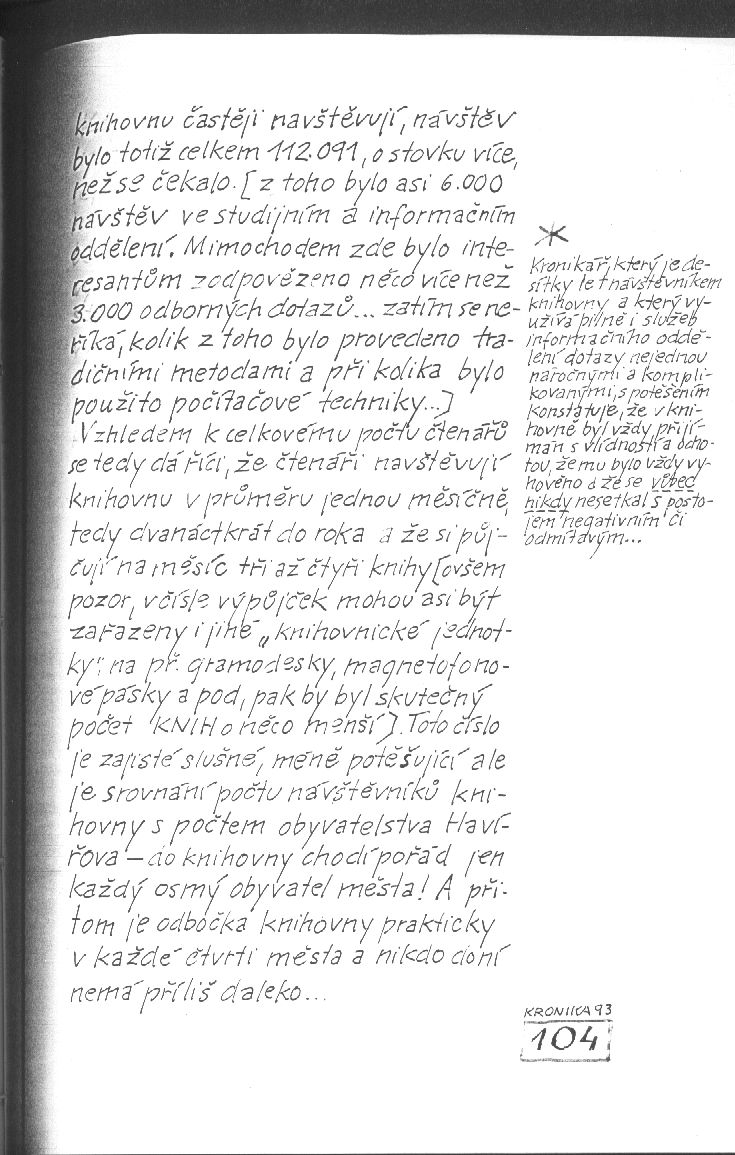 knihovnu častěji navštěvují, návštěv
bylo totiž celkem 112.091, o stovku více,
než se čekalo. [z toho bylo asi 6.000
návštěv ve studijním a informačním
oddělení. Mimochodem zde bylo inte-
resantům zodpovězeno něco více než
3.000 odborných dotazů... zatím se ne-
říká, kolik z toho bylo provedeno tra-
dičními metodami a při kolika bylo
použito počítačové techniky...]
Vzhledem k celkovému počtu čtenářů
se tedy dá říci, že čtenáři navštěvují
knihovnu v průměru jednou měsíčně,
tedy dvanáctkrát do roka a že si půj-
čují na měsíc tři až čtyři knihy [ovšem
pozor, v čísle výpůjček mohou asi být
zařazeny i jiné „knihovnické jednot-
ky", na př. gramodesky, magnetofono-
vé pásky a pod, pak by byl skutečný
počet KNIH o něco menší]. Toto číslo
je zajisté slušné, méně potěšující ale
je srovnání počtu návštěvníků kni-
hovny s počtem obyvatelstva Haví-
řova – do knihovny chodí pořád jen
každý osmý obyvatel města! A při-
tom je odbočka knihovny prakticky
v každé čtvrti města a nikdo do ní
nemá příliš daleko...
*
Kronikář, který je de-
sítky let návštěvníkem
knihovny a který vy-
užívá pilně i služeb
informačního oddě-
lení dotazy nejednou
náročnými a kompli-
kovanými, s potěšením
konstatuje, že v kni-
hovně byl vždy přijí-
mán s vlídností a ocho-
tou, že mu bylo vždy vy-
hověno a že se vůbec
nikdy nesetkal s posto-
jem negativním či
odmítavým...
KRONIKA 93
104